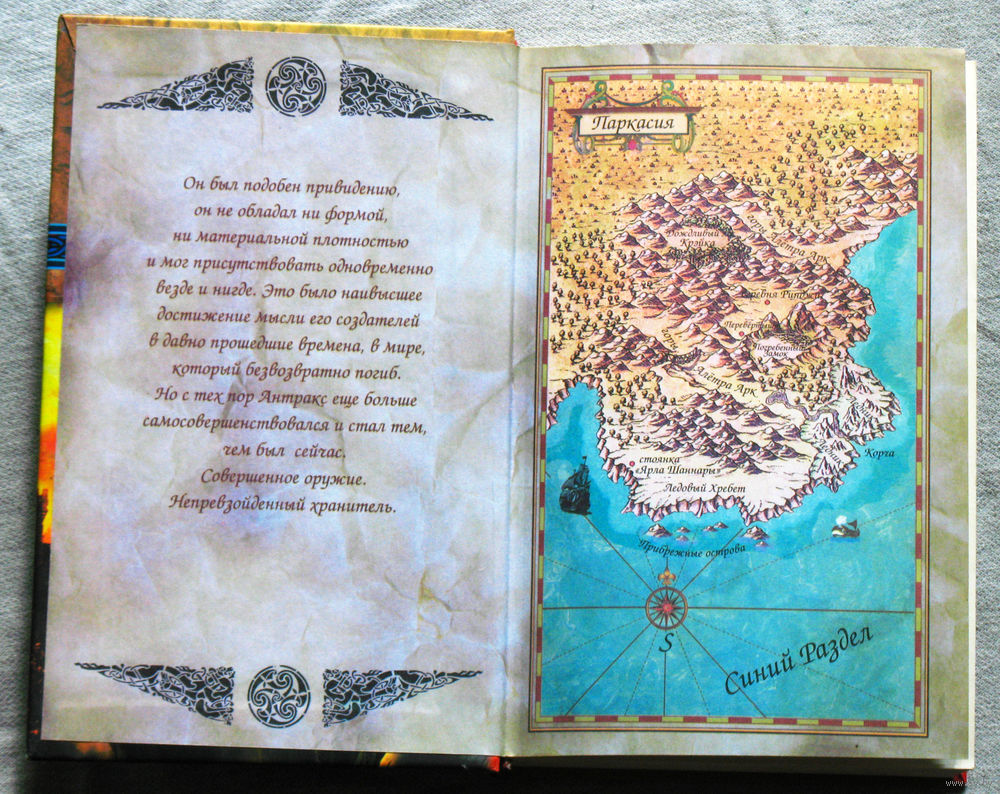 Он был подобен привидению,
он не обладал ни формой,
ни материальной плотностью
и мог присутствовать одновременно
везде и нигде. Это было наивысшее
достижение мысли его создателей
в давно прошедшие времена, в мире,
который безвозвратно погиб.
Но с тех пор Антракс еще больше
самосовершенствовался и стал тем,
чем был сейчас.
Совершенное оружие.
Непревзойденный хранитель.
Паркасия
Дождливый
Крэйка
горы Алётра Арк
деревня Рипожи
Погребенный
Замок
горы Алётра Арк
Корча
стоянка
«Ярла Шаннары»
Ледовый Хребет
Прибрежные острова
S
Синий Раздел